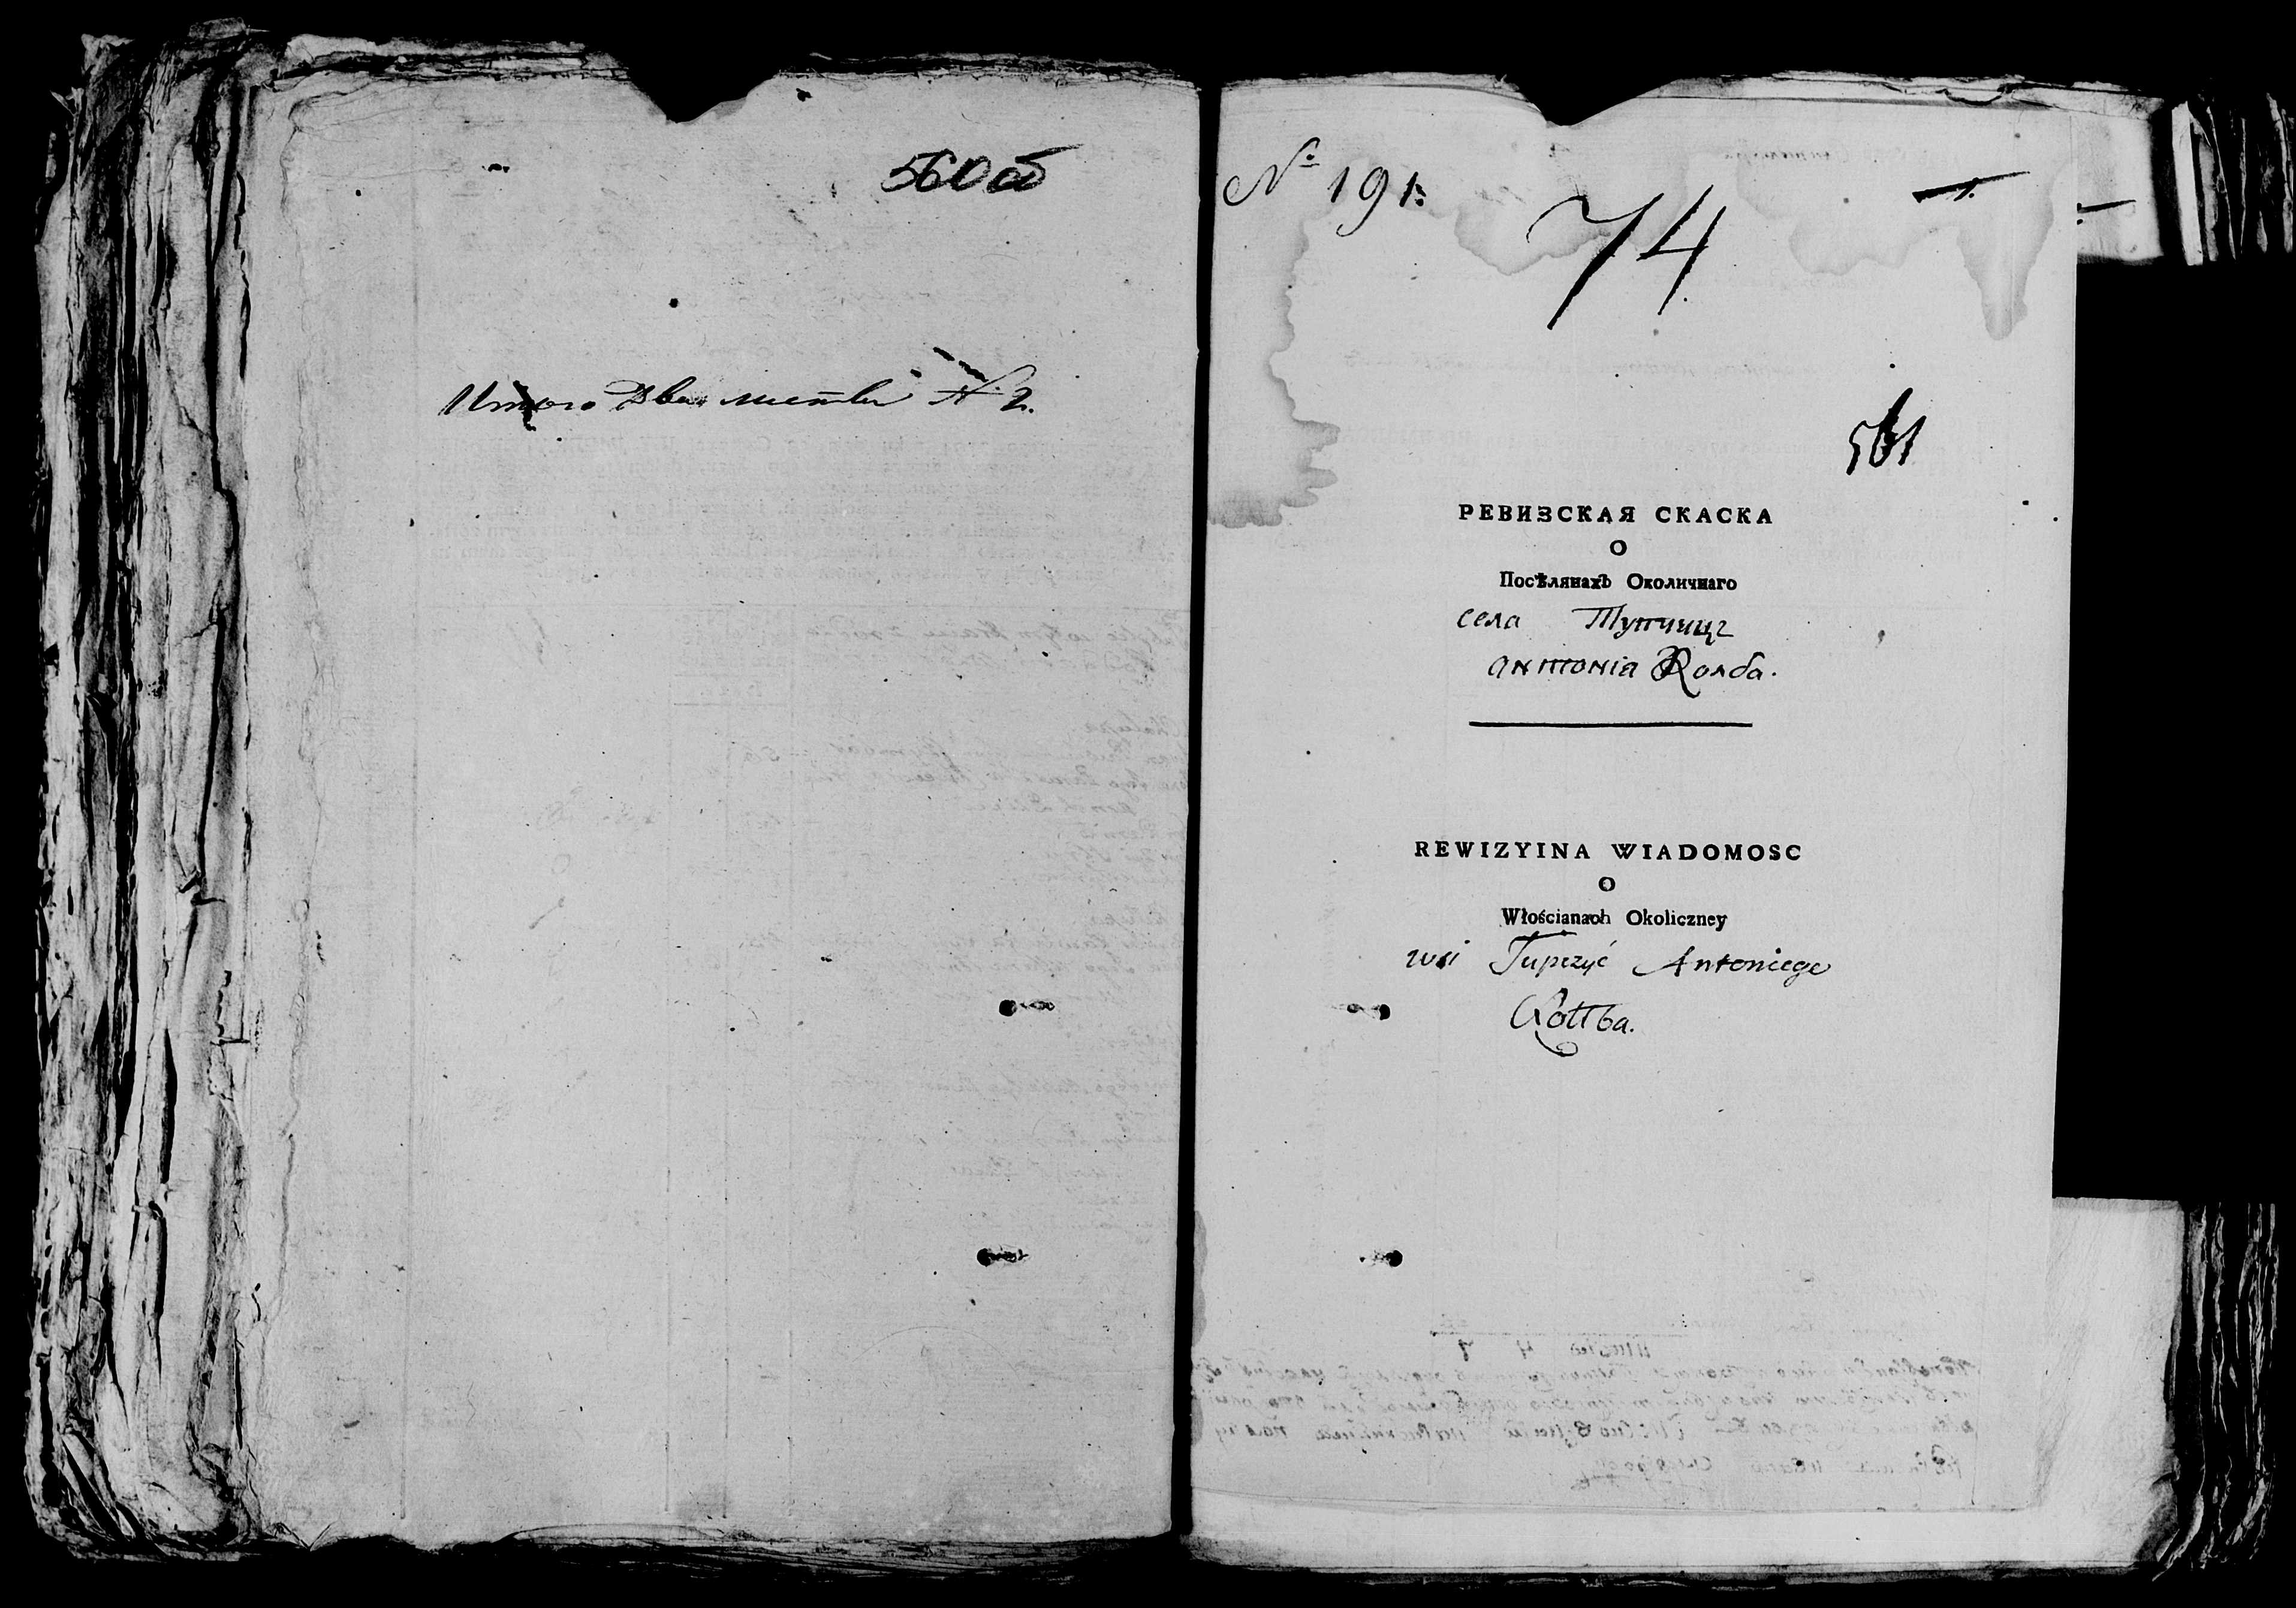 560 об
Итого два листа № 2.
№ 191:
74
1.
561
РЕВИЗСКАЯ СКАСКА
О
Посѣлянахъ Околичнаго
села Тупчицъ
антонія Колба.
REWIZYINA WIADOMOSC
O
Włościanach Okoliczney
wsi Tupczyć Antoniego
Kołłba.